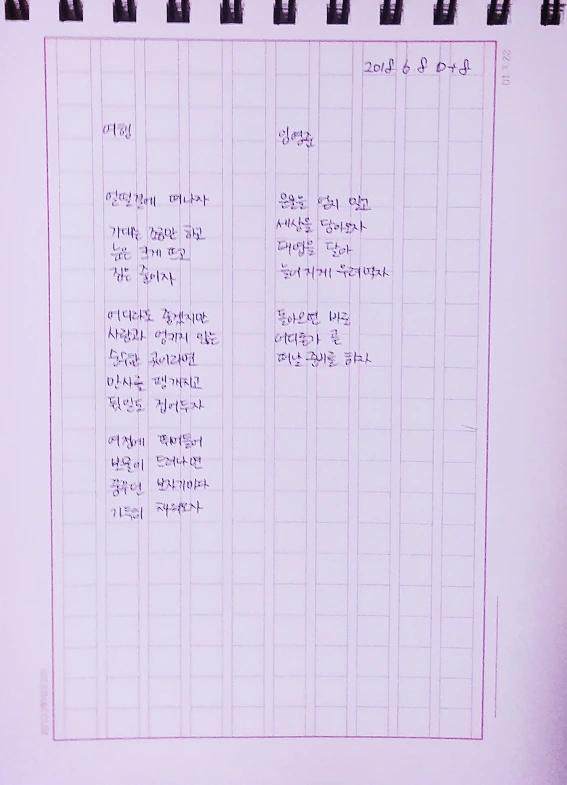 2018 6 8 D+8
여행
임영준
얼떨결에 떠나자
기대는 조금만 하고
눈은 크게 뜨고
짐은 줄이자
어디라도 좋겠지만
사람과 엉키지 않는
순수한 곳이라면
만사를 팽개치고
뒷일도 접어두자
여정에 뛰어들어
보물이 드러나면
꿈꾸던 보자기마다
가득히 채워오자
은율을 얹지 말고
세상을 담아오자
태엽을 달아
늘어지게 우려먹자
돌아오면 바로
어디론가 곧
떠날 준비를 하자
22 × 10